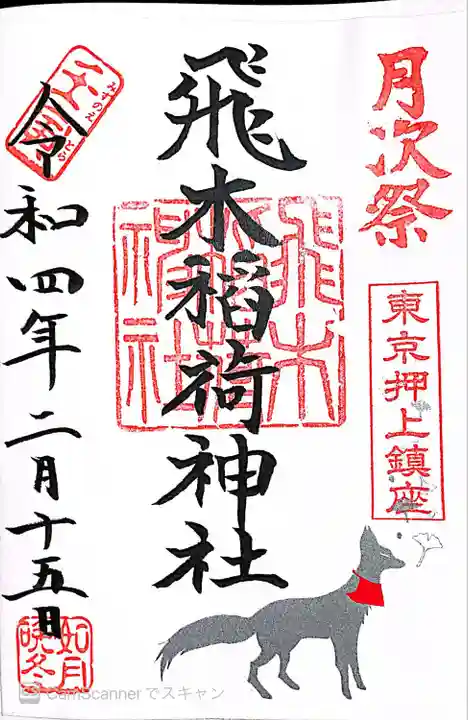 月次祭
東京押上鎮座
飛木稲荷神社
飛木稲荷神社
壬寅
みずのえ
とら
令和四年二月十五日
如月
暁冬
CamScannerでスキャン